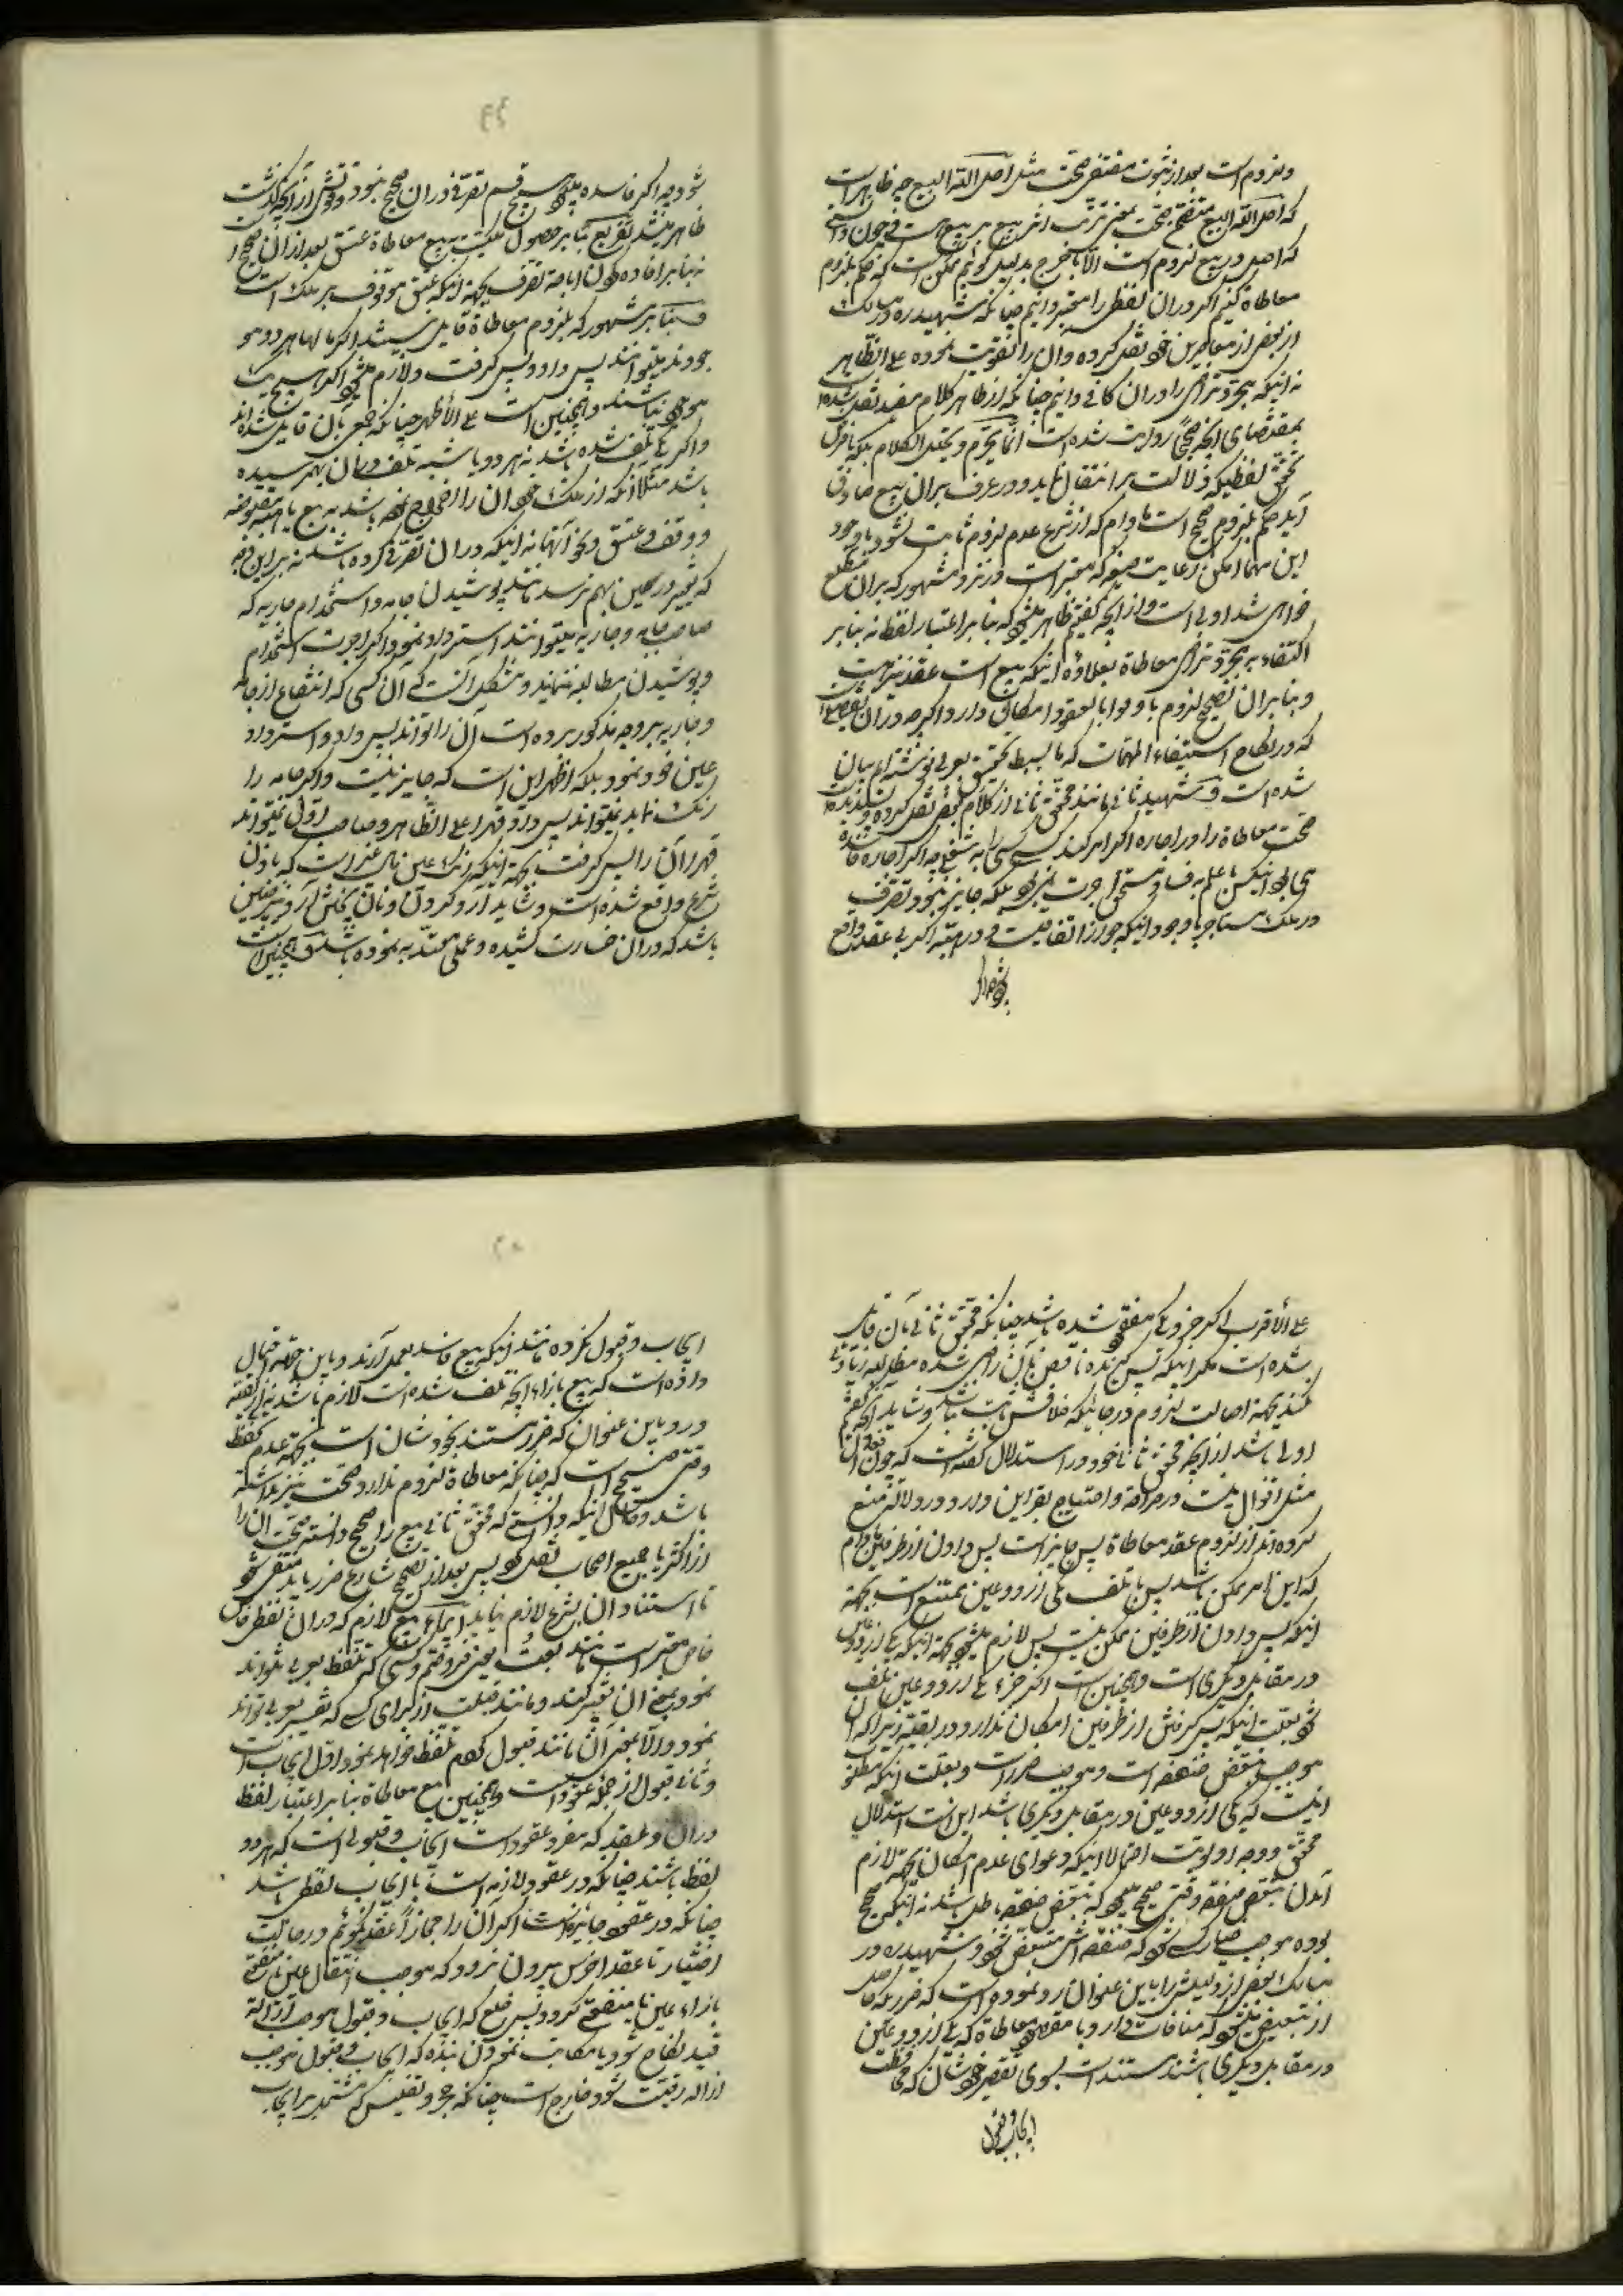 ولزوم است بعد از ثبوت مقتضی صحّت مثل احل اللّه البیع چه ظاهر است
که احل اللّه البیع مقتضی صحّت بمعنی ترتب اثر بیع بر بیع است و چون دانستی
که اصل در بیع لزوم است الّا ما خرج بدلیل کوئیم ممکن است که حکم بلزوم
معاطاة کنیم اکر در ان لفظی را معتبر دانیم چنانکه شهید ره در مسالک
از بعض از معاصرین خود نقل کرده و آن را تقویت نموده علی الظّاهر
نه اینکه مجرّد تراضی را در ان کافی دانیم چنانکه از ظاهر کلام مفید نقل شده
بمقتضای آنچه صحیحا روایت شده است انّما یحرّم و یحلّل الکلام بلکه باعتبار
تحقّق لفظیکه دلالت بر انتقال نماید و در عرف بر ان بیع صادق
آید حکم بلزوم صحیح است مادام که از شرع عدم لزوم ثابت نشود با وجود
این مهما امکن رعایت صیغه که معتبر است در نزد مشهور که بر ان مطلع
خواهی شد اولی است و از آنچه کفتیم ظاهر میشود که بنا بر اعتبار لفظ نه بنا بر
اکتفاء به مجرّد تراضی معاطاة بعلاوه اینکه بیع است عقد نیز هست
و بنا بر ان تصحیح لزوم با وفوا بالعقود امکان دارد اکر چه در ان تفصیلی است
که در نکاح استیفاء المهمّات که ما ببسط تحقیق بعربی نوشته ام بیان
شده است و شهید ثانی مانند محقّق ثانی از کلام بعض نقل کرده و پسندیده
صحّت معاطاة را در اجاره اکر امر کند کسی کسی را به شغلی چه اکر اجاره فاسده
می بود اینکس با علم به فساد مستحقّ اجرت نمی بود بلکه جایز نبود تصرّف
در ملک مستاجر با وجود اینکه جواز اتفاقیست و در هبه اکر بی عقد واقع
شود چه اکر
شود چه اکر فاسده میبود هیچ قسم تصرّف در ان صحیح نبود و قوتش از آنچه کذشت
ظاهر میشد تفریع بنا بر حصول ملکیت به بیع معاطاة عتق بعد از ان صحیح است
نه بنا بر افاده کردن اباحه تصرّف بجهة اینکه عتق موقوف بر ملک است
و بنا بر مشهور که بلزوم معاطاة قایل نیستند اکر مالها هر دو مو
جودند میتوانند پس داد و پس کرفت و لازم میشود اکر هیچ یک
موجود نباشند و همچنین است علی الأظهر چنانکه جمعی بآن قایل شده اند
و اکر یکی تلف شده باشد نه هر دو یا شبه تلف در ان بهم رسیده
باشد مثلا آنکه از ملک خود ان را اخراج نموده باشد به بیع یا هبه مقبوضه
و وقف و عتق و نحو آنها نه اینکه در ان تصرّفی کرده باشد نه بر این وجه
که تغییر در عین بهم نرسد مانند پوشیدن جامه و استخدام جاریه که
صاحب جامه و جاریه میتوانند استرداد نمود و اکر اجرت استخدام
و پوشیدن مطالبه ننمایند و مشکل آنست که آن کسی که انتفاع از جامه
و جاریه بر وجه مذکور برده است آن را تواند پس داد و استرداد
عین خود نمود بلکه اظهر این است که جایز نیست و اکر جامه را
رنک نماید نمیتواند پس داد قهرا علی الظّاهر و صاحب اوّل نمیتواند
قهرا آن را پس کرفت بجهة اینکه رنک عین مال غیر است که باذن
شرع واقع شده است و شاید آرد کردن و نان پختن آرد نیز چنین
باشد که در ان خسارت کشیده و عملی معتدّ به نموده باشد و همچنین است
علی الأقرب اکر جزو یکی مفقود شده باشد چنانکه محقّق ثانی بآن قایل
شده است مکر اینکه پس کیرنده ناقص بآن راضی شده مطالبه زیادتی
نکند بجهة اصالت لزوم در جائیکه خلافش ثابت نباشد و شاید آنچه کفتیم
اولی باشد از آنچه محقّق ثانی خود در استدلال کفته است که چون افعال
مثل اقوال نیست در صراحة و احتیاج بقراین دارد در دلالة منع
کرده اند از لزوم عقد معاطاة پس جایز است پس دادن از طرفین مادام
که این امر ممکن باشد پس با تلف یکی از دو عین ممتنع است بجهة
اینکه پس دادن از طرفین ممکن نیست پس لازم میشود بجهة اینکه یکی از دو عین
در مقابل دیکری است و همچنین است اکر جزء یکی از دو عین تلف
شود بعلت اینکه پس کرفتن از طرفین امکان ندارد در بقیّه زیرا که ان
موجب تبعّض صفقه است و موجب ضرر است و بعلت اینکه مطلوب
اینست که یکی از دو عین در مقابل دیکری باشد این است استدلال
محقّق و وجه اولویت احتمالا اینکه دعوای عدم امکان بجهة لازم
آمدن تبعّض صفقه وقتی صحیح میبود که تبعّض صفقه باطل باشد نه اینکه صحیح
بوده موجب خیار کسی شود که صفقه اش متبعّض شود و شهید ره در
مسالک بعض از دلیلش را باین عنوان رد نموده است که ضرریکه حاصل
از تبعیض میشود که منافات دارد با مقصود معاطاة که یکی از دو عین
در مقابل دیکری باشند مستند است بسوی تقصیر خودشان که محافظت
ایجاب و قبول
ایجاب و قبول نکرده مانند اینکه بیع فاسد بعمل آرند و باین جهة احتمال
داده است که بیع بازاء آنچه تلف شده است لازم باشد نه در بقیّه
و رد باین عنوان که ضرر مستند بخودشان است بجهة عدم تحفّظ
وقتی صحیح است که چنانکه معاطاة لزوم ندارد صحّت نیز نداشته
باشد و حال اینکه دانستی که محقّق ثانی بیع را صحیح دانسته صحّت ان را
از اکثر یا جمیع اصحاب نقل نمود پس بعد از تصحیح شارع ضرر باید منتفی شود
تا استناد ان بشرع لازم نیاید ایراء بیع لازم که در ان لفظ
خاص معتبر است مانند بعت یعنی فروختم و کسی که تلفّظ بعربی نتواند
نمود بمعنی ان تعبیر کند و مانند قبلت از برای کسی که تفسیر بعربی تواند
نمود و الّا بمعنی آن مانند قبول کردم تلفّظ خواهد نمود و اوّل ایجاب است
و ثانی قبول از جمله عقود است و همچنین بیع معاطاة بنا بر اعتبار لفظ
در ان و عقد که مفرد عقود است ایجاب و قبولی است که هر دو
لفظ باشند چنانکه در عقود لازمه است یا ایجاب لفظی باشد
چنانکه در عقود جایزه است اکر آن را مجازاً عقد کوئیم و در حالت
اختیار تا عقد اخرس بیرون نرود که موجب انتقال عین یا منفعتی
بازاء عین یا منفعتی کردد پس خلع که ایجاب و قبول موجب ازاله
قید نکاح شود یا مکاتب نمودن بنده که ایجاب و قبول موجب
ازاله رقیّت شود خارج است چنانکه حجر و تفلیس که مشتمل بر ایجاب